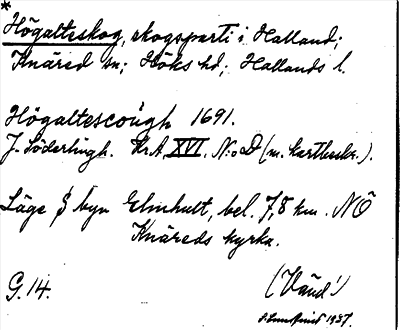 *
Högalteskog, skogsparti i Halland;
Knäred sn; Höks hd; Hallands l.
Högaltescough 1691.
J. Söderlingh. Kr. A. XVI. N:o D (m. kartbeskr.).
Läge § byn Elmhult, bel. 7,8 km. NÖ
Knäreds kyrka.
G. 14.
(Vänd!)
1937.